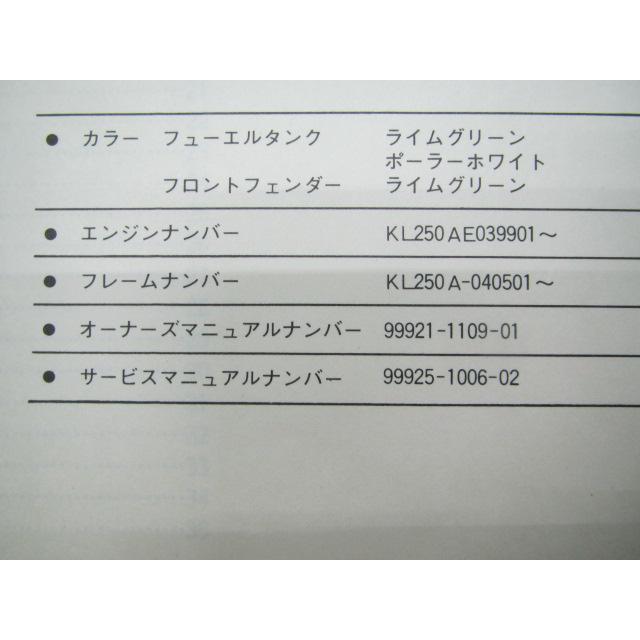 ● カラー フューエルタンク ライムグリーン
ポーラーホワイト
フロントフェンダー ライムグリーン
● エンジンナンバー KL250AE039901〜
● フレームナンバー KL250A-040501〜
● オーナーズマニュアルナンバー 99921-1109-01
● サービスマニュアルナンバー 99925-1006-02